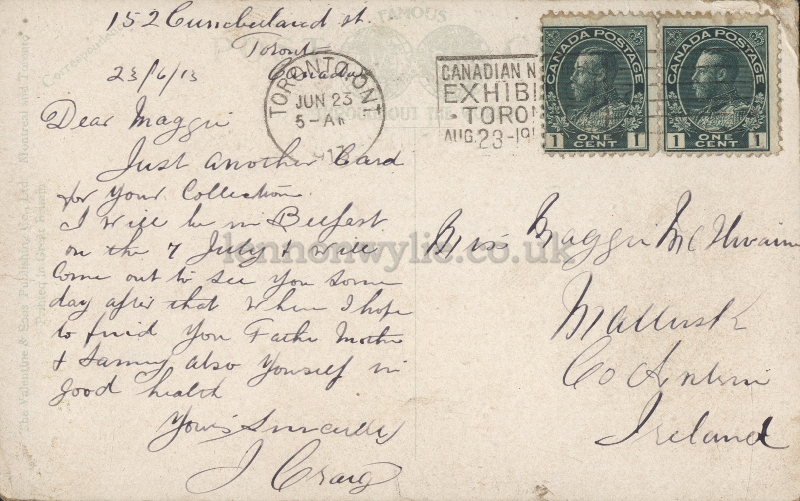 152 Cumberland st.
Toronto
23/6/13 Canada
Dear Maggie
Just another Card
for Your Collection
I will be in Belfast
on the 7 July & will
Come out to see You some
day after that when I hope
to find You Father Mother
& Sammy also Yourself in
good health
Yours Sincerely
J Craig
TORONTO, ONT
JUN 23
5-AM
CANADIAN N
EXHIBI
TORON
AUG. 23-
CANADA POSTAGE
1 ONE CENT 1
CANADA POSTAGE
1 ONE CENT 1
FAMOUS
THROUGHOUT THE
Correspondence
The Valentine & Sons Publishing Co., Ltd. Montreal and Toronto
Printed in Great Britain
Miss Maggie McIlwaine
Mallusk
Co Antrim
Ireland
lennonwylie.co.uk